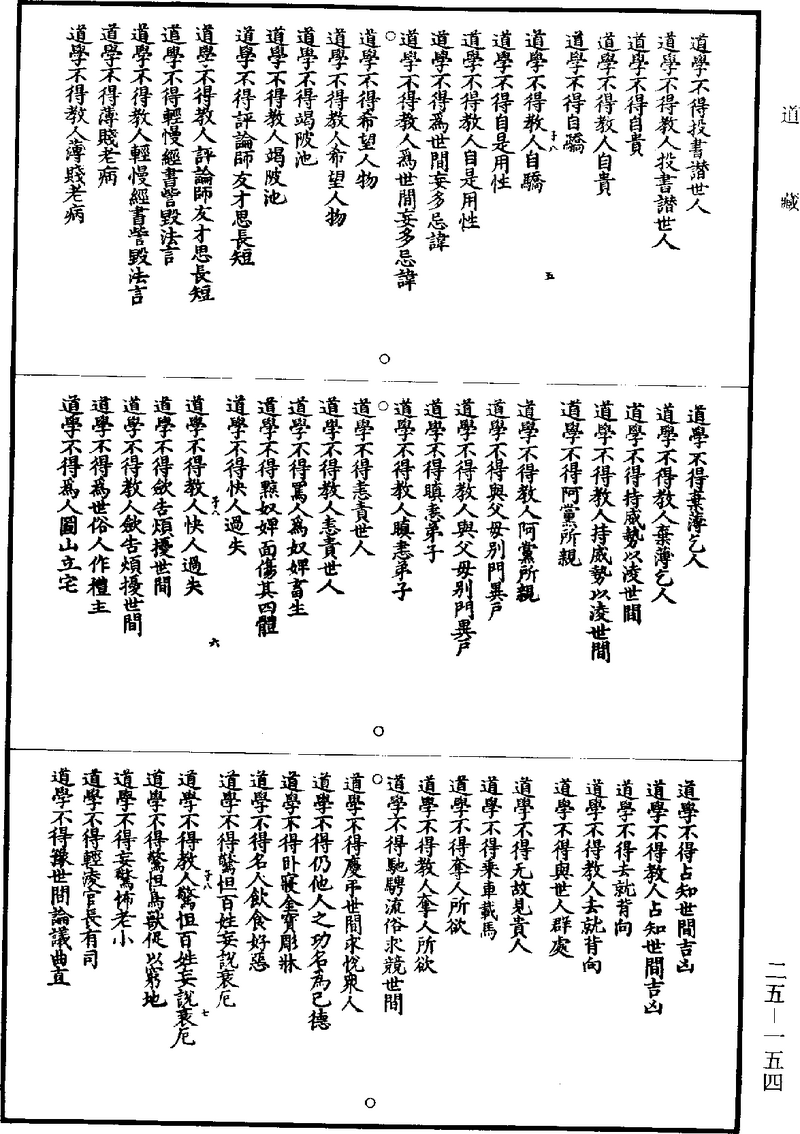 道藏
道學不得投書譖世人
道學不得教人投書譖世人
道學不得自貴
道學不得教人自貴
道學不得自驕
道學不得教人自驕
子八 五
道學不得自是用性
道學不得教人自是用性
道學不得為世間妄多忌諱
道學不得教人為世間妄多忌諱
道學不得希望人物
道學不得教人希望人物
道學不得竭陂池
道學不得教人竭陂池
道學不得評論師友才思長短
道學不得教人評論師友才思長短
道學不得輕慢經書訾毀法言
道學不得教人輕慢經書訾毀法言
道學不得薄賤老病
道學不得教人薄賤老病
道學不得棄薄乞人
道學不得教人棄薄乞人
道學不得持威勢以凌世間
道學不得教人持威勢以凌世間
道學不得阿黨所親
道學不得教人阿黨所親
道學不得與父母別門異戶
道學不得教人與父母別門異戶
道學不得瞋恚弟子
道學不得教人瞋恚弟子
道學不得恚責世人
道學不得教人恚責世人
道學不得罵人為奴婢畜生
道學不得黥奴婢面傷其四體
道學不得快人過失
道學不得教人快人過失
子八 六
道學不得斂告煩擾世間
道學不得教人斂告煩擾世間
道學不得為世俗人作禮主
道學不得為人圖山立宅
道學不得占知世間吉凶
道學不得教人占知世間吉凶
道學不得去就背向
道學不得教人去就背向
道學不得與世人群處
道學不得无故見貴人
道學不得乘車載馬
道學不得奪人所欲
道學不得教人奪人所欲
道學不得馳騁流俗求競世間
道學不得慶弔世間求悅衆人
道學不得仍他人之功名為己德
道學不得卧寢金寶彫牀
道學不得名人飲食好惡
道學不得驚怛百姓妄說衰厄
道學不得教人驚怛百姓妄說衰厄
子八 七
道學不得驚怛鳥獸促以窮地
道學不得妄驚怖老小
道學不得輕凌官長有司
道學不得豫世間論議曲直
二五—一五四